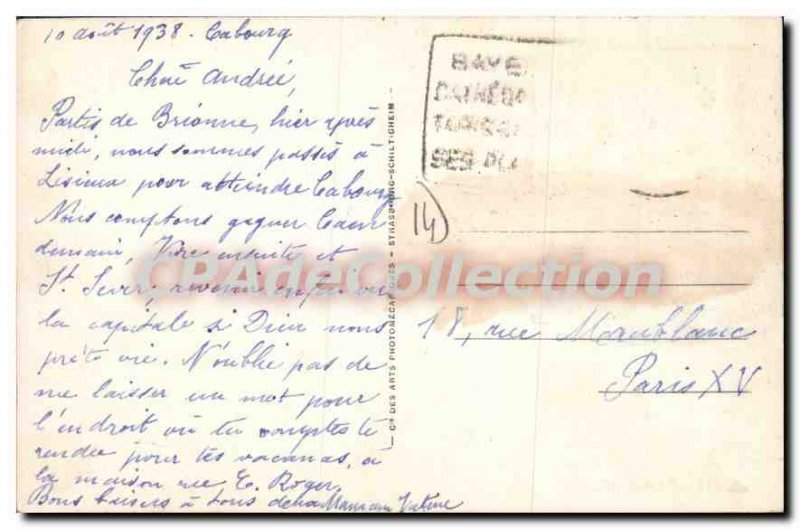 10 août 1938. Cabourg
Andrée,
Partis de Brionne, hier après
midi, nous sommes passés à
Lisieux pour atteindre Cabourg
Nous comptons gagner Caen
demain, Vire ensuite et
St Sever, revenir enfin
la capitale si Dieu nous
prête vie. N'oublie pas de
me laisser un mot pour
l'endroit où tu comptes te
rendre pour tes vacances, à
la maison rue E. Roger
Bons baisers à tous
BAYE
SES
14
18, rue Maublanc
Paris XV
Cie DES ARTS PHOTOMÉCANIQUES - STRASBOURG-SCHILTIGHEIM
CPAdeCollection